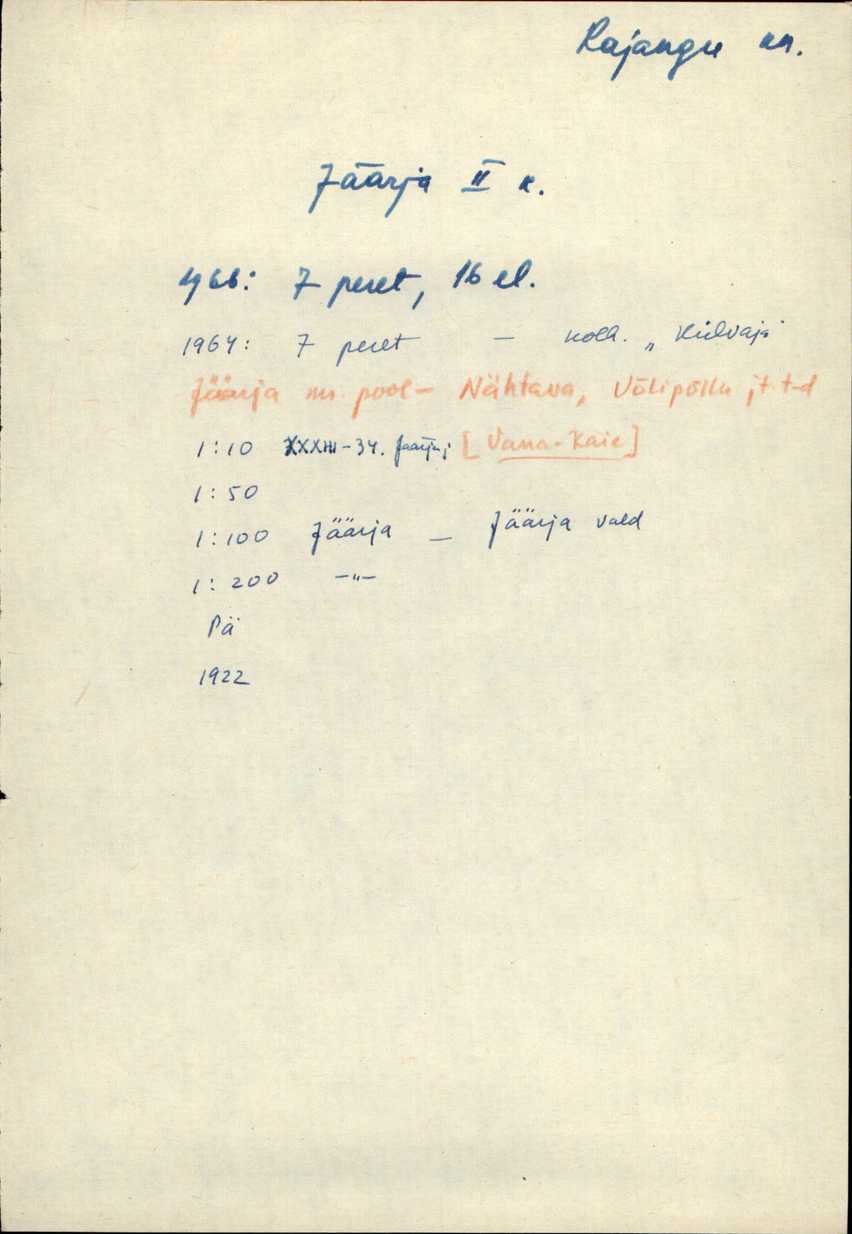 Rajangu kn.
Jäärja II k.
1966: 7 peret, 16 el.
1964: 7 peret – kolh. „Külvaja"
Jäärja m. pool – Nähtava, Välipõllu j.t. t-d
1:10 XXXIII-34. Jäärja; [Vana-Kaie]
1:50
1:100 Jäärja – Jäärja vald
1:200 –"–
Pä
1922